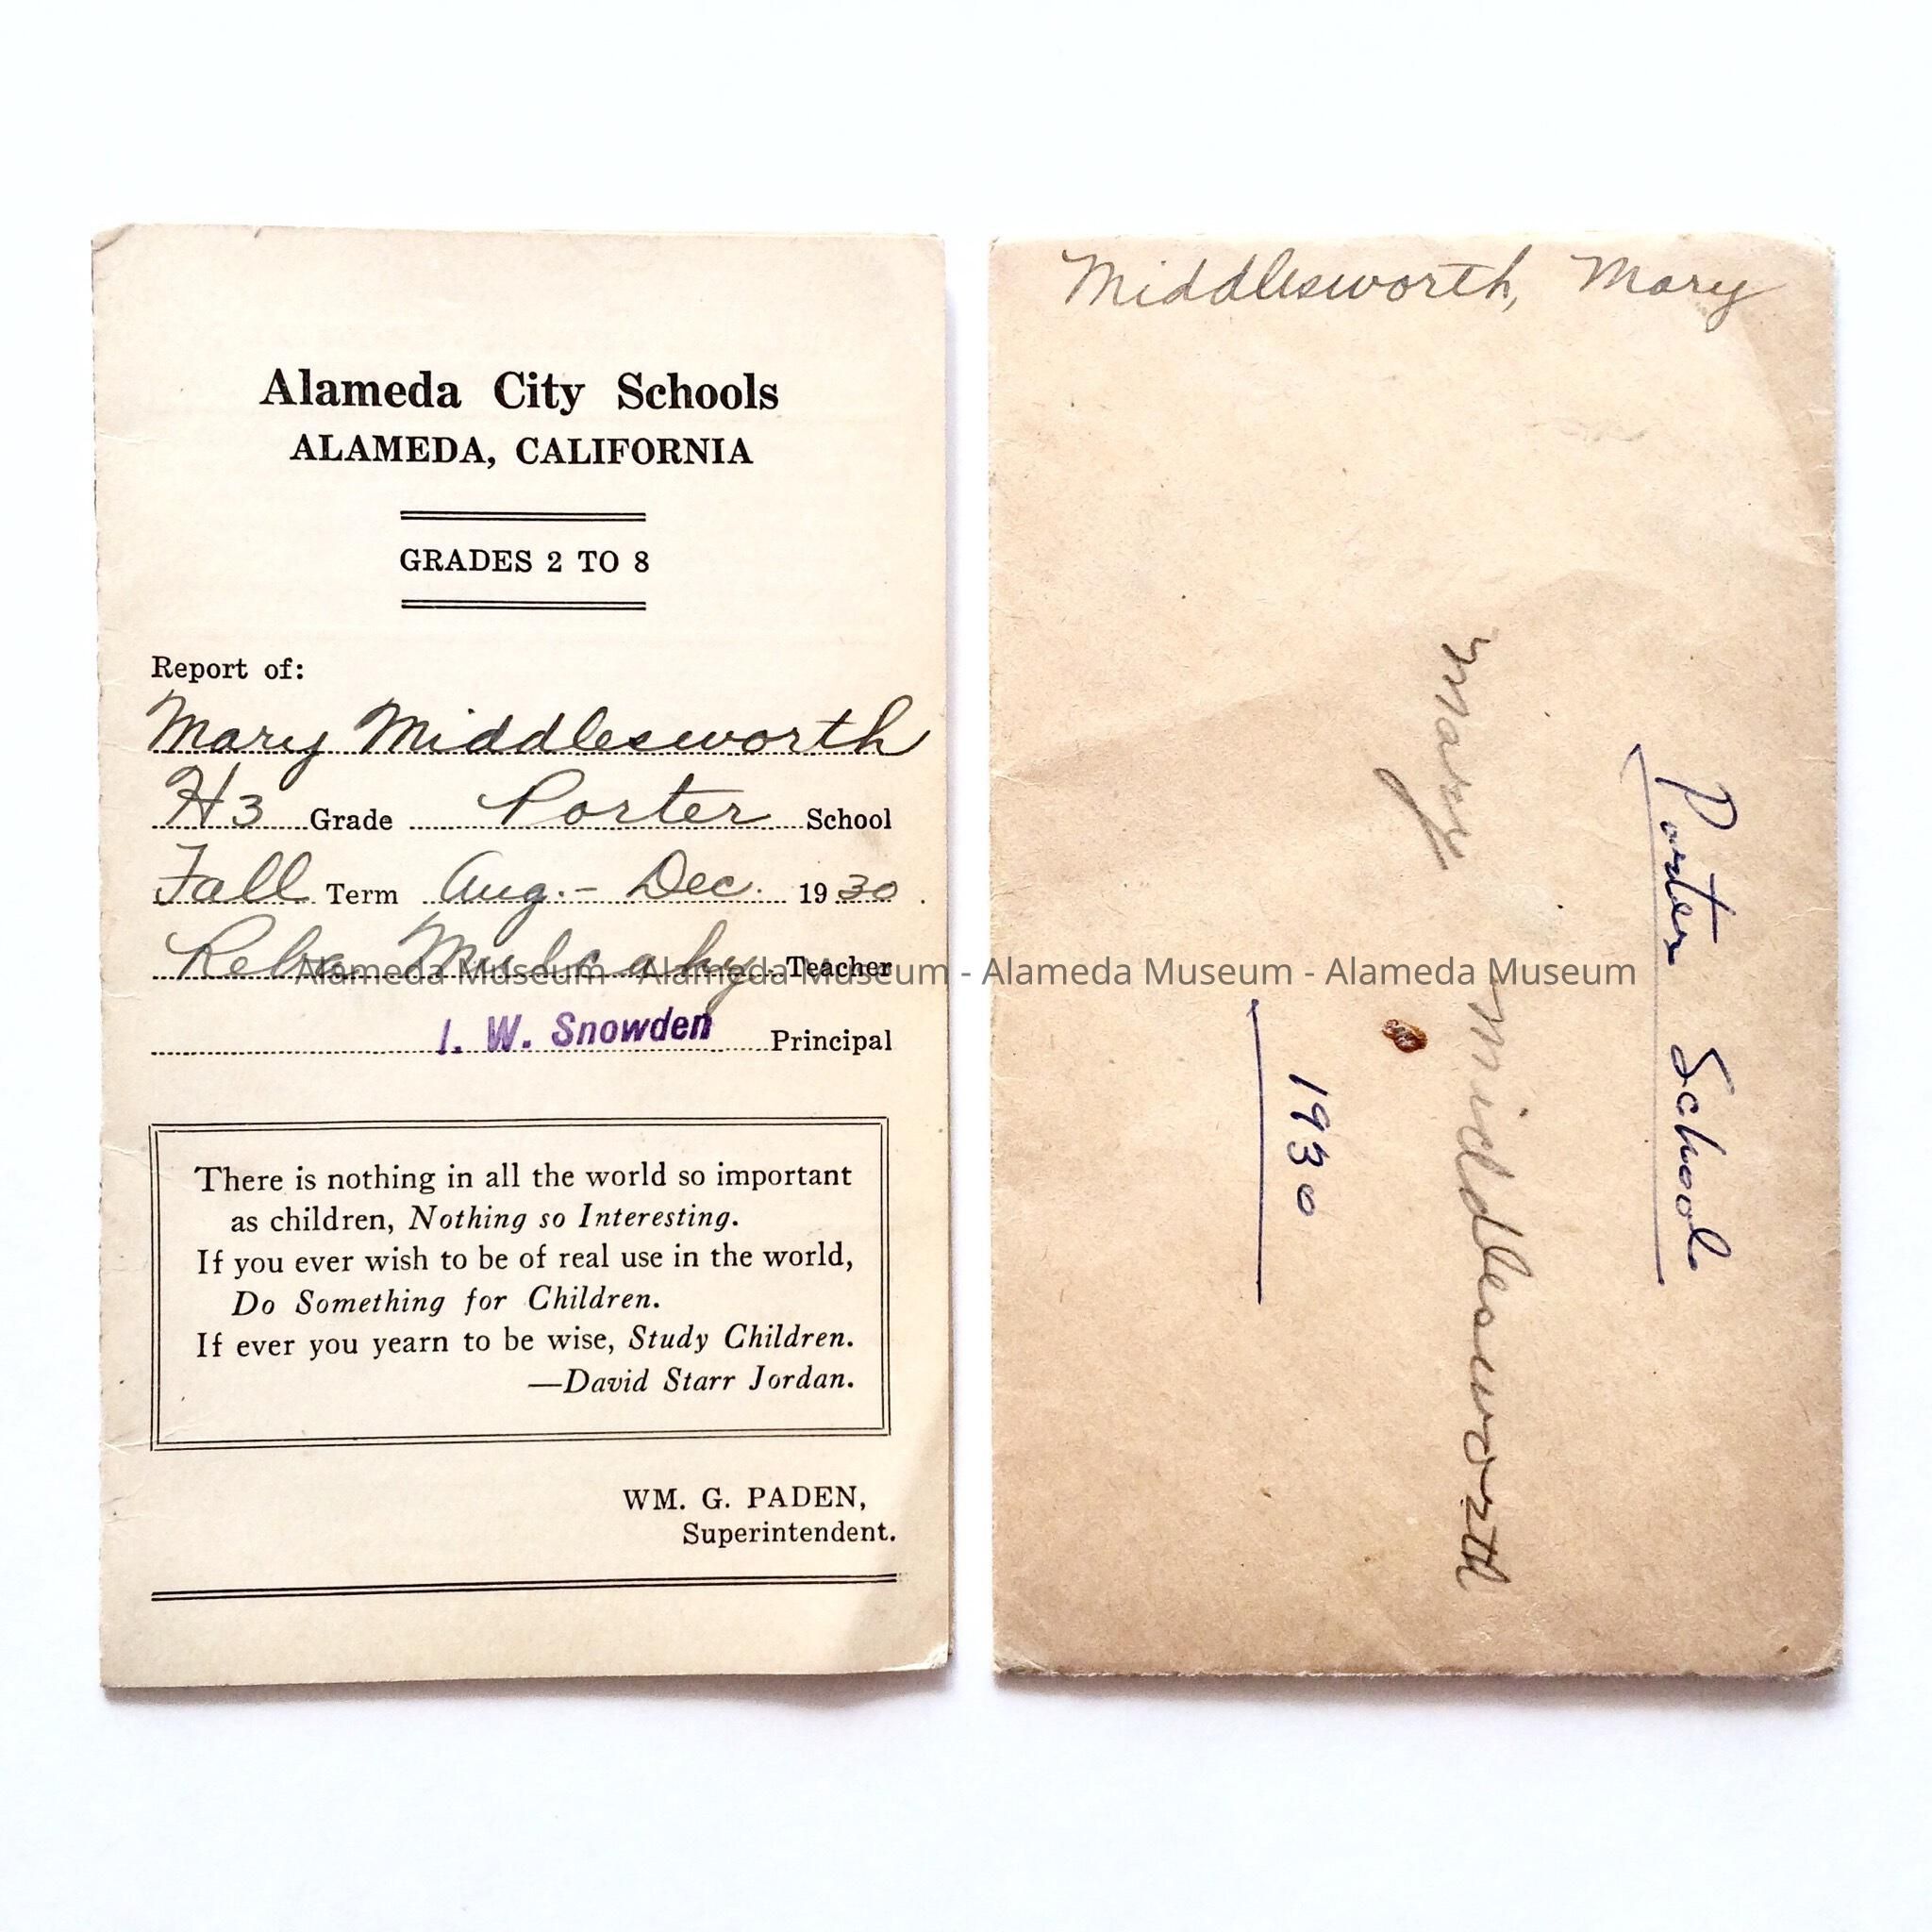 Alameda City Schools
ALAMEDA, CALIFORNIA
GRADES 2 TO 8
Report of:
Mary Middlesworth
H3 Grade Porter School
Fall Term Aug. - Dec. 1930.
Reba Mulcahy Teacher
I. W. Snowden Principal
There is nothing in all the world so important
as children, Nothing so Interesting.
If you ever wish to be of real use in the world,
Do Something for Children.
If ever you yearn to be wise, Study Children.
—David Starr Jordan.
WM. G. PADEN,
Superintendent.
Middlesworth, Mary
Porter School
Mary Middlesworth
1930
Alameda Museum - Alameda Museum - Alameda Museum - Alameda Museum